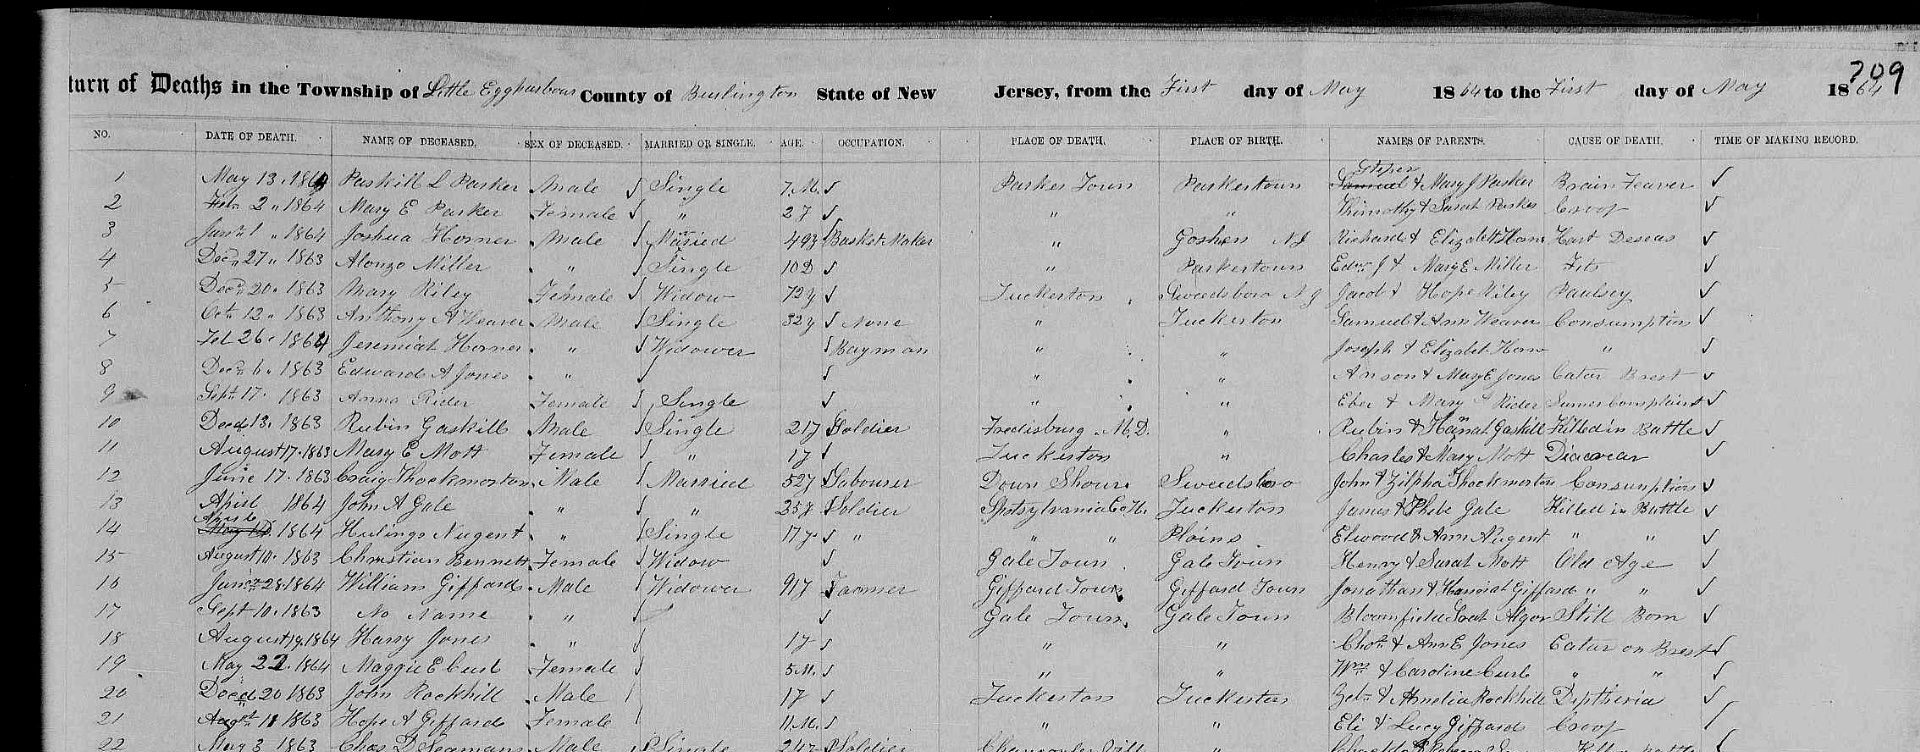 209
turn of Deaths in the Township of Little Eggharbour County of Burlington State of New Jersey, from the First day of May 1864 to the First day of May 1864
NO. DATE OF DEATH. NAME OF DECEASED. SEX OF DECEASED. MARRIED OR SINGLE. AGE. OCCUPATION. PLACE OF DEATH. PLACE OF BIRTH. NAMES OF PARENTS. CAUSE OF DEATH. TIME OF MAKING RECORD.
1 May 13, 1864 Paskill L Parker Male Single 7 M. Parker Town Parkertown Samuel & Mary J Parker Brain Feaver
2 Feb 2 " 1864 Mary E Parker Female " 2 y " " Thimothy & Sarah Parker Croop
3 Jany 1 " 1864 Joshua Horner Male Married 49y Basket Maker " Goshen NJ Richard & Elizabeth Horn Hart Deseas
4 Dec 27 " 1863 Alonzo Miller " Single 10 D " Parkertown Edw J & Mary E Miller Fits
5 Dec 20. 1863 Mary Riley Female Widow 72y Tuckerton Sweedsboro N J Jacob & Hope Riley Paulsey
6 Oct 12. 1863 Anthony A Weaver Male Single 32y None " Tuckerton Samuel & Ann Weaver Consumption
7 Feb 26. 1864 Jeremiah Horner " Widower Bayman " " Joseph & Elizabet Horn "
8 Dec 6. 1863 Edward A Jones " " " Anson & Mary E Jones Catar Brest
9 Sept 17. 1863 Anna Rider Female Single " " Eber & Mary Rider Sumer Complaint
10 Decd 13. 1863 Rubin Gaskill Male Single 21y Soldier Fredisburg M.D. " Rubin & Hanah Gaskill Killed in Battle
11 August 17. 1863 Mary E Mott Female " 1y Tuckerton " Charles & Mary Mott
12 June 17. 1863 Craig Thockmorton Male Married 52y Labourer Down Shour Sweedsboro John & Zilpha Thockmorton Consumption
13 April 1864 John A Gale " " 25y Soldier Spotsylvania C.H. Tuckerton James & Phebe Gale Killed in Battle
14 1864 Hulings Nugent " Single 17y " " " Plains Elwood & Ann Nugent " "
15 August 10. 1863 Christian Bennett Female Widow Gale Town Gale Town Henry & Sarah Mott Old Age
16 Jany 28. 1864 William Giffard Male Widower 91y Farmer Giffard Town Giffard Town Jonathan & Hannah Giffard " "
17 Sept 10. 1863 No Name " Gale Town Gale Town Bloomfield Still Born
18 August 1864 Harry Jones " 1y " " Chas & Ann E Jones Catar on Brest
19 May 22. 1864 Maggie E Curb Female 5 M. " " Wm & Caroline Curb " "
20 Decd 20 1863 John Rockhill Male 1y Tuckerton Tuckerton Zeb & Amelia Rockhill Diptheria
21 Augst 11 1863 Hope A Giffard Female 11 M. " " Eli & Lucy Giffard Croop
22 May 3 1863 Chas D Seamans Male Single 24y Soldier